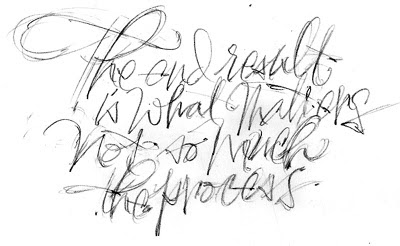 The end result
is what matters
not so much
the process.